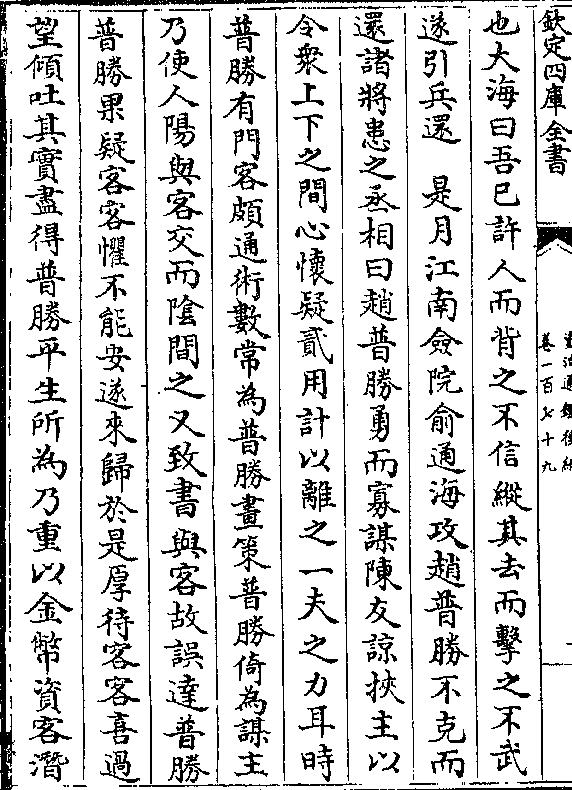 欽定四庫全書
卷一百七十九
也大海曰吾已許人而背之不信縱其去而擊之不武
遂引兵還　是月江南僉院俞通海攻趙普勝不克而
還諸將患之丞相曰趙普勝勇而寡謀陳友諒挾主以
令衆上下之間心懷疑貳用計以離之一夫之力耳時
普勝有門客頗通術數常為普勝畫策普勝倚為謀主
乃使人陽與客交而陰間之又致書與客故誤達普勝
普勝果疑客客懼不能安遂來歸於是厚待客客喜過
望傾吐其實盡得普勝平生所為乃重以金幣資客潛